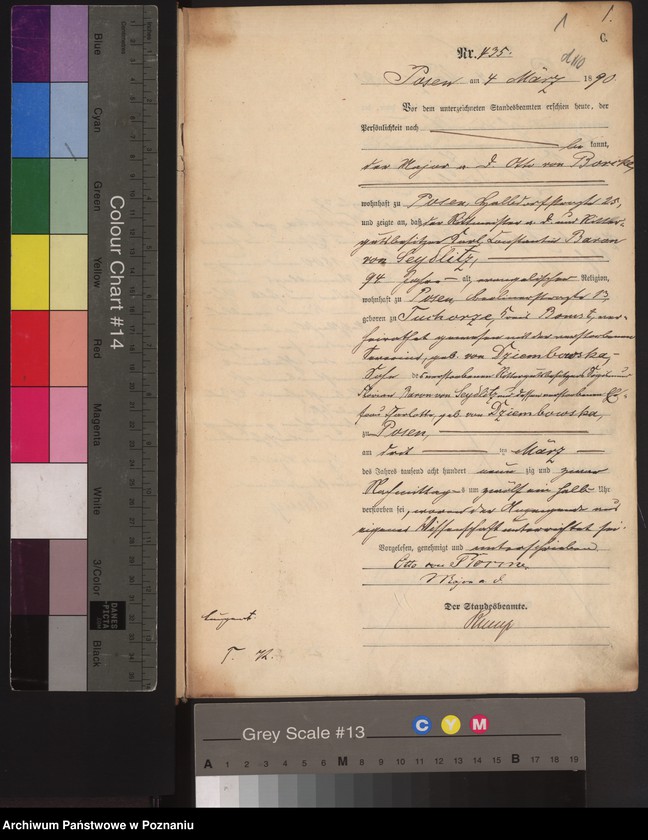 1.
1
C.
Nr. 435.
Posen am 4 März 1890
Vor dem unterzeichneten Standesbeamten erschien heute, der
Persönlichkeit nach
be kannt,
der Major a. D. Otto von
wohnhaft zu Posen, 25,
und zeigte an, daß der Rittmeister a. D. und Ritter-
gutsbesitzer Karl Constantin Baron
von Seydlitz,
94 Jahre alt, evangelischer Religion,
wohnhaft zu Posen, Berlinerstraße 13
geboren zu Tuchorze, Kreis Bomst, ver-
heirathet gewesen mit der verstorbenen
Severine, geb. von Dziembowska,
Sohn des verstorbenen Rittergutsbesitzers
Baron von Seydlitz und dessen verstorbenen Ehe-
frau Charlotte, geb. von Dziembowska,
zu Posen,
am drit ten März
des Jahres tausend acht hundert neun zig und
Nachmittags um zwölf ein halb Uhr
verstorben sei, wovon der Anzeigende aus
eigener Wissenschaft unterrichtet sei.
Vorgelesen, genehmigt und unterschrieben
Otto von
Major a. D.
Der Standesbeamte.
Colour Chart #14
Blue
Cyan
Green
Yellow
Red
Magenta
White
3/Color
Black
Inches
Centimetres
DANES
PICTA
.COM
Grey Scale #13
C Y M
A 1 2 3 4 5 6 M 8 9 10 11 12 13 14 15 B 17 18 19
Archiwum Państwowe w Poznaniu